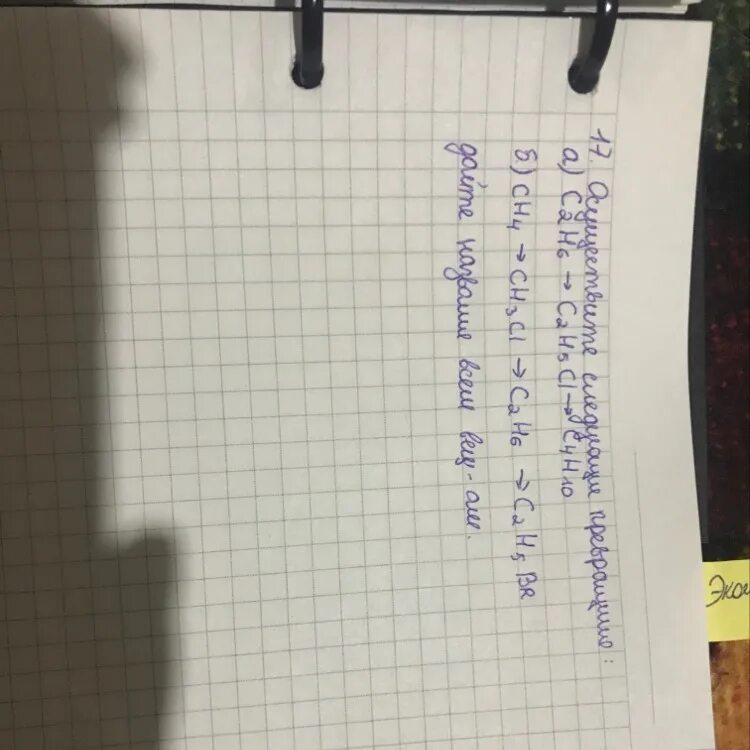 17. Осуществите следующие превращения:
а) C2H6 → C2H5Cl → C4H10
б) CH4 → CH3Cl → C2H6 → C2H5Br
дайте название всем вещ-ам.
Экон